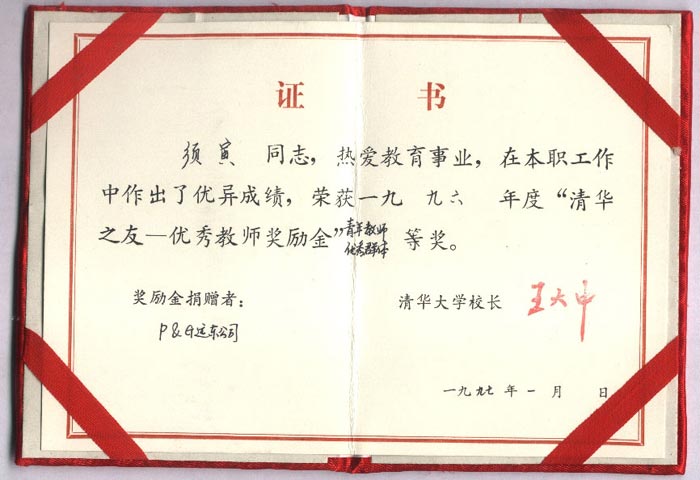 证 书
须寅 同志，热爱教育事业，在本职工作
中作出了优异成绩，荣获一九 九六 年度“清华
之友—优秀教师奖励金”青年教师优秀群体 等奖。
奖励金捐赠者：
P&G远东公司
清华大学校长 王大中
一九九七年一月 日